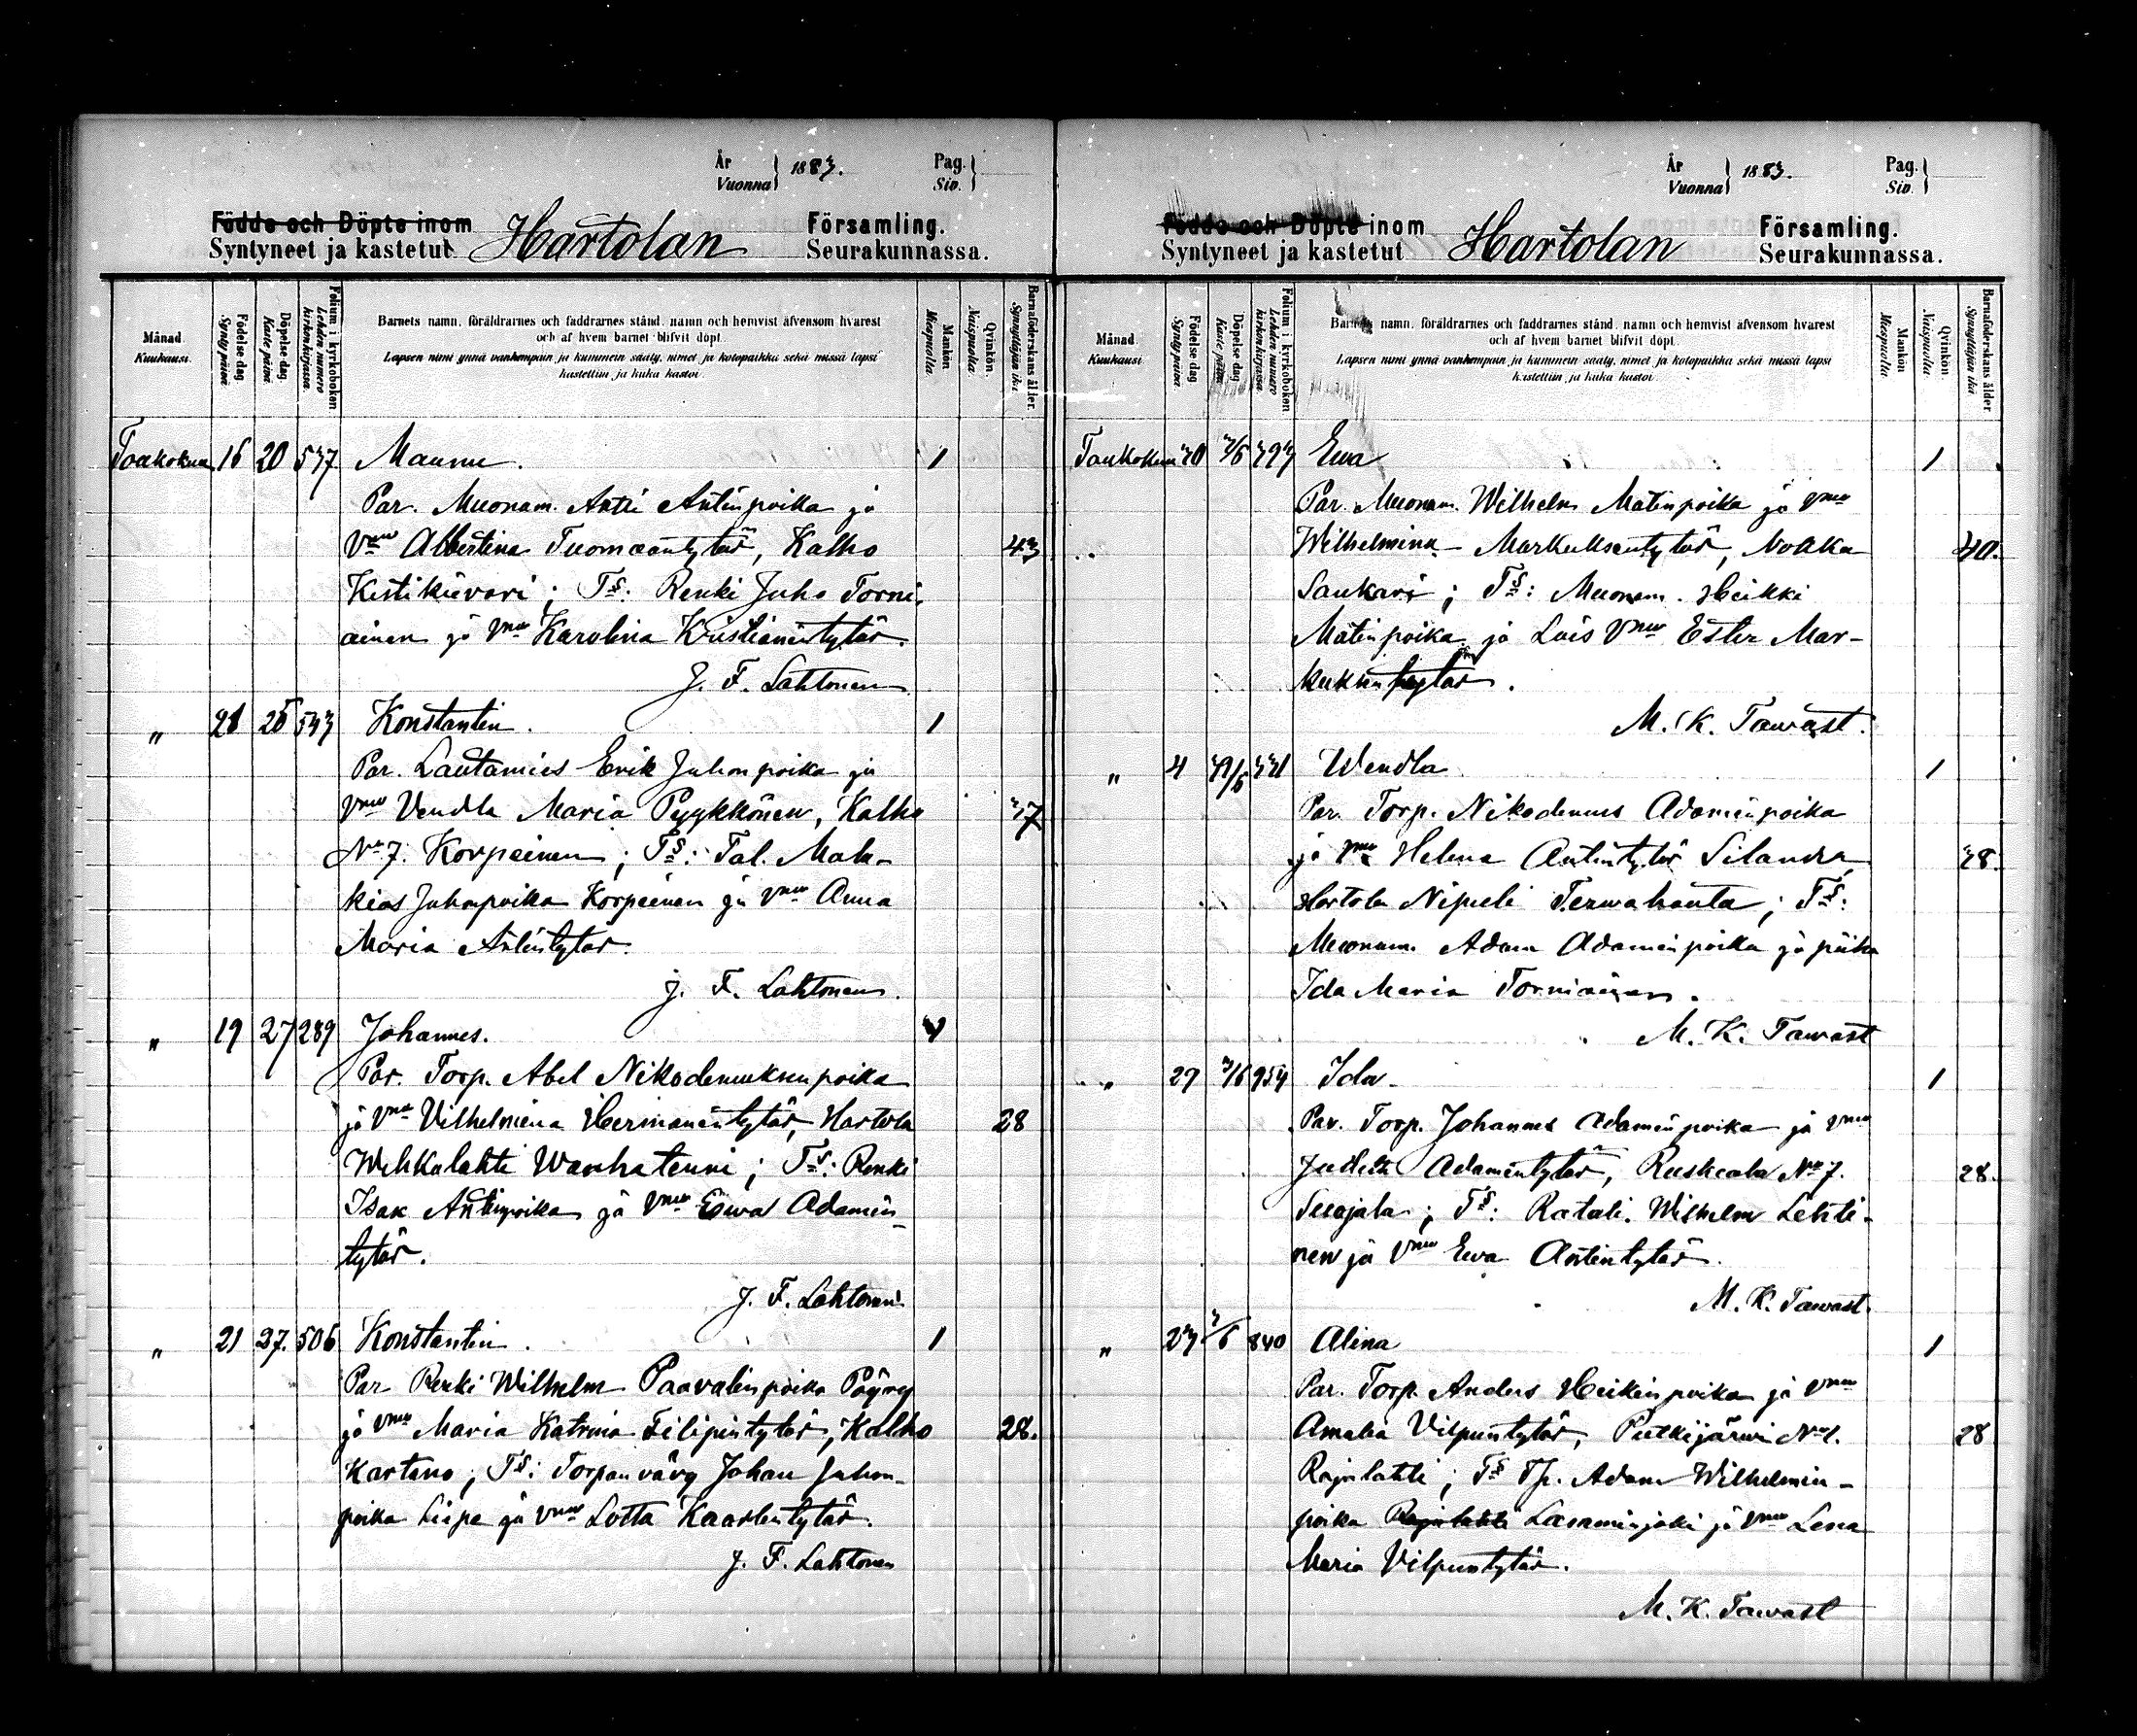 År
Vuonna } 1883.
Pag.
Siv. }
Födde och Döpte inom
Syntyneet ja kastetut
Hartolan
Församling.
Seurakunnassa.
Månad.
Kuukausi.
Födelse dag
Synty päivä.
Döpelse dag.
Kaste päivä
Folium i kyrkoboken
Lehden numero
kirkon kirjassa.
Barnets namn, föräldrarnes och faddrarnes stånd, namn och hemvist äfvensom hvarest
och af hvem barnet blifvit döpt.
Lapsen nimi ynnä vanhempain ja kummein sääty, nimet ja kotopaikka sekä missä lapsi
kastettiin ja kuka kastoi.
Mankön
Miespuolia.
Qvinkön.
Naispuolia.
Barnaföderskans ålder.
Synnyttäjän ikä
Toukokuu 16 20 547 Maunu. 1
Par. Muonam. Antti Antinpoika ja
Vmo Albertina Tuomaantytär, Kalho 43
Kistikievari; Ts: Renki Juho Torni-
ainen ja Vmo Karolina Kristianintytär.
J. F. Lahtonen
" 26 543 Konstantin. 1
Par. Lautamies Erik Juhonpoika ja
Vmo Vendla Maria Pyykkönen, Kalho
No 7. Korpeinen; Ts: Tal. Mala-
kias Juhonpoika Korpeinen ja Vmo Anna
Maria Antintytär.
J. F. Lahtonen.
" 19 27 289 Johannes. 1
Par. Torp. Abel Nikodemuksenpoika
ja Vmo Vilhelmiina Hermanintytär, Hartola 28
Wehkalahti Wanhatenni; Ts: Renki
Isak Antinpoika ja Vmo Ewa Adamin-
tytär.
J. F. Lahtonen
" 21 27. 506 Konstantin. 1
Par Renki Wilhelm Paavalinpoika Pöyry
ja Vmo Maria Katrina Filipintytär, Kalho 28.
Kartano; Ts: Torpanväry Johan Juhon-
poika Liipe ja Vmo Lotta Kaarlentytär.
J. F. Lahtonen
År
Vuonna } 1883.
Pag.
Siv. }
Födde och Döpte inom
Syntyneet ja kastetut
Hartolan
Församling.
Seurakunnassa.
Månad.
Kuukausi
Födelse dag
Synty päivä.
Döpelse dag
Kaste päivä.
Folium i kyrkoboken
Lehden numero
kirkon kirjassa.
Barnets namn, föräldrarnes och faddrarnes stånd, namn och hemvist äfvensom hvarest
och af hvem barnet blifvit döpt.
Lapsen nimi ynnä vanhempain ja kummein sääty, nimet ja kotopaikka sekä missä lapsi
kastettiin ja kuka kastoi.
Mankön
Miespuolia
Qvinkön.
Naispuolia.
Barnaföderskans ålder.
Synnyttäjän ikä
Toukokuu 30 3/6 393 Ewa 1
Par. Muonam. Wilhelm Matinpoika ja Vmo
Wilhelmina Markuksentytär, Nokka 40.
Saukari; Ts: Muonam. Heikki
Matinpoika ja Lois Vmo Ester Mar-
kuksentytär.
M. K. Tawast.
" 4 Wendla 1
Par. Torp. Nikodemus Adaminpoika
ja Vmo Helena Antintytär Silander, 38.
Hartola Nipuli Terwahauta; Ts:
Muonam. Adam Adaminpoika ja piika
Ida Maria Torniainen.
M. K. Tawast
" 27 3/6 954 Ida 1
Par. Torp. Johannes Adaminpoika ja Vmo
Judith Adamintytär, Ruskeala No 7. 28.
Suojala; Ts: Ratali. Wilhelm Lehti-
nen ja Vmo Ewa Antintytär.
M. K. Tawast.
" 23 3/6 840 Alina 1
Par. Torp. Anders Heikinpoika ja Vmo
Amalia Vilpuntytär, Putkijärwi No 1. 28
Rajalahti; Ts Tp. Adam Wilhelmin-
poika Rajalahti Lasaminjoki ja Vmo Lena
Maria Vilpuntytär.
M. K. Tawast